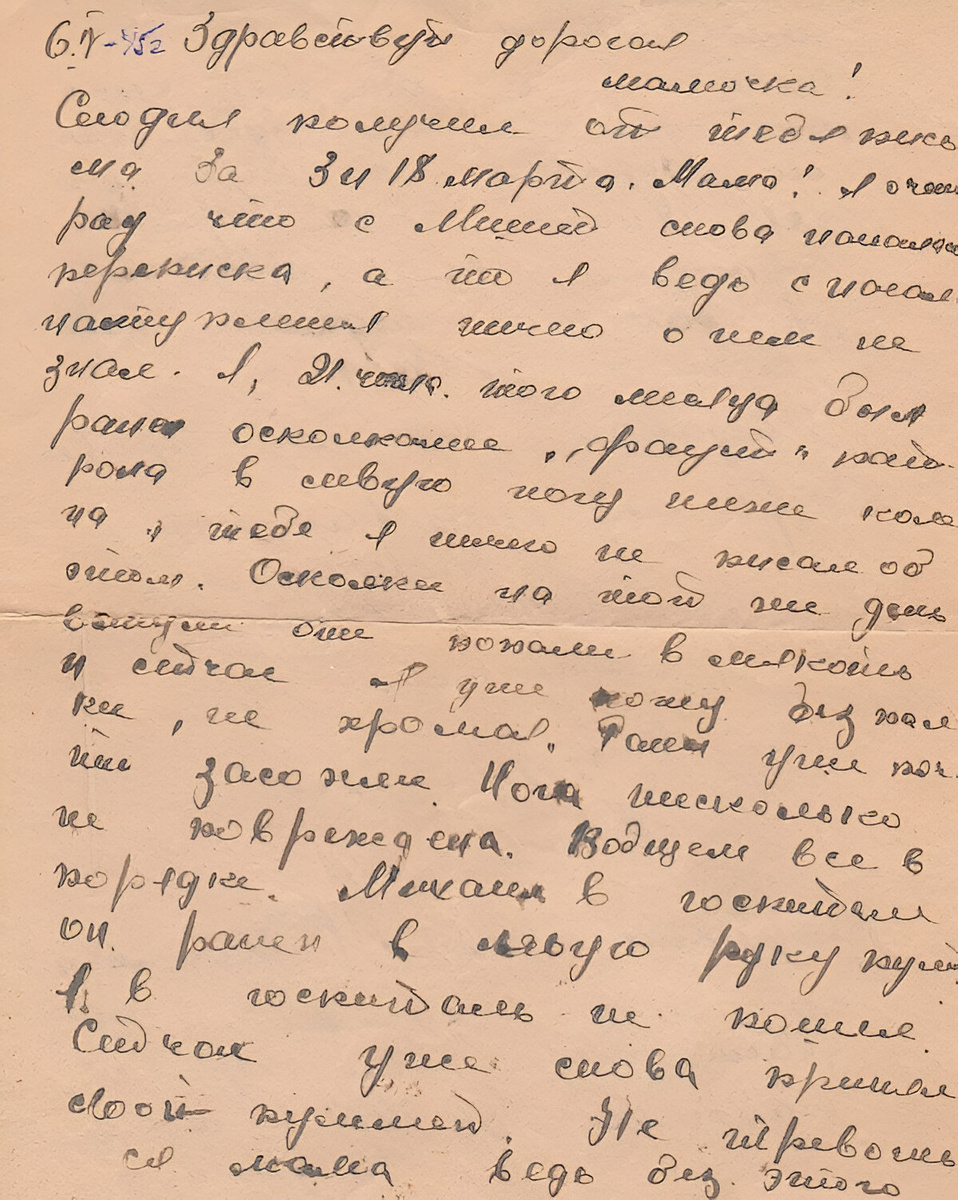 6.IV-45г Здравствуй дорогая
мамочка!
Сегодня получил от тебя пись
ма за 3 и 18 марта. Мама! Я очень
рад что с Мишей снова началась
переписка, а то я ведь с начал
наступления ничего о нем не
знал. Я, 21 того месяца был
ранен осколками „фауст" пат-
рона в левую ногу ниже коле
на, тебе я ничего не писал об
этом. Осколки на той же день
вынули они попали в мякоть
и сейчас я уже хожу без пал
ки, не хромая. Раны уже поч-
ти засохли. Нога нисколько
не повреждена. Вобщем все в
порядке. Михаил в госпитале
он ранен в левую руку пулей
Я в госпиталь не пошел.
Сейчас уже снова принял
свой пулемет. Не тревожь
ся мама ведь без этого